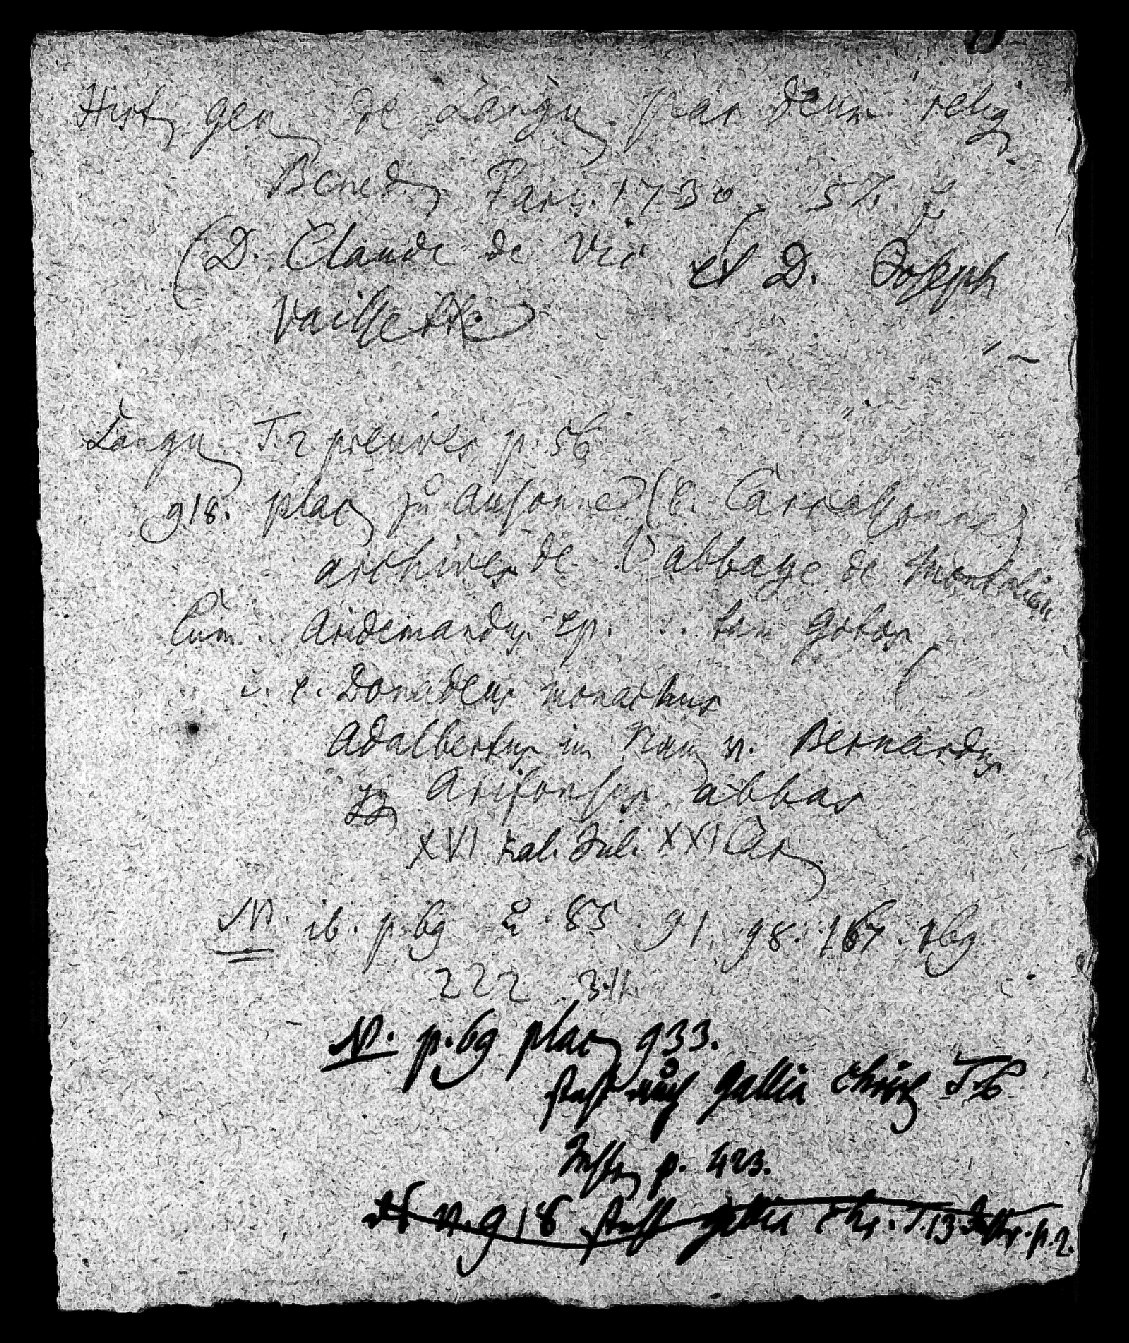 Hist. gen. de Langu. par deux relig.
Bened. Paris 1730. 5 T. f
(D. Claude de Vic et D. Joseph
Vaissette.)
Langu. T. 2 preuves p. 56
918. plac. zu Ausonne (E. Carcassonne)
archives de l'abbaye de Montolieu
Cum Aridemandus ep. tam gotos
Donadeus monachus
Adalbertus Bernardus
Arifonsus abbas
XVI Kal. Jul. XXI
N. ib. p. 69 85 91. 98. 167. 169
222 311
N. p. 69 plac. 933.
steht auch Gallia christ. T. 6
Instr. p. 423.
N. 918 steht gallia chr. T. 13 Instr. p. 2.